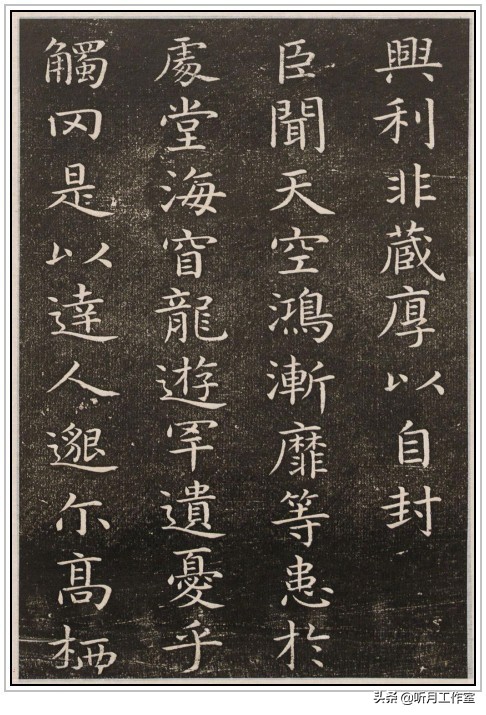 興利非蔵厚以自封
臣聞天空鴻漸靡等患於
處堂海窅龍遊罕遺憂乎
觸网是以達人邈尒高栖
头条 @听月工作室